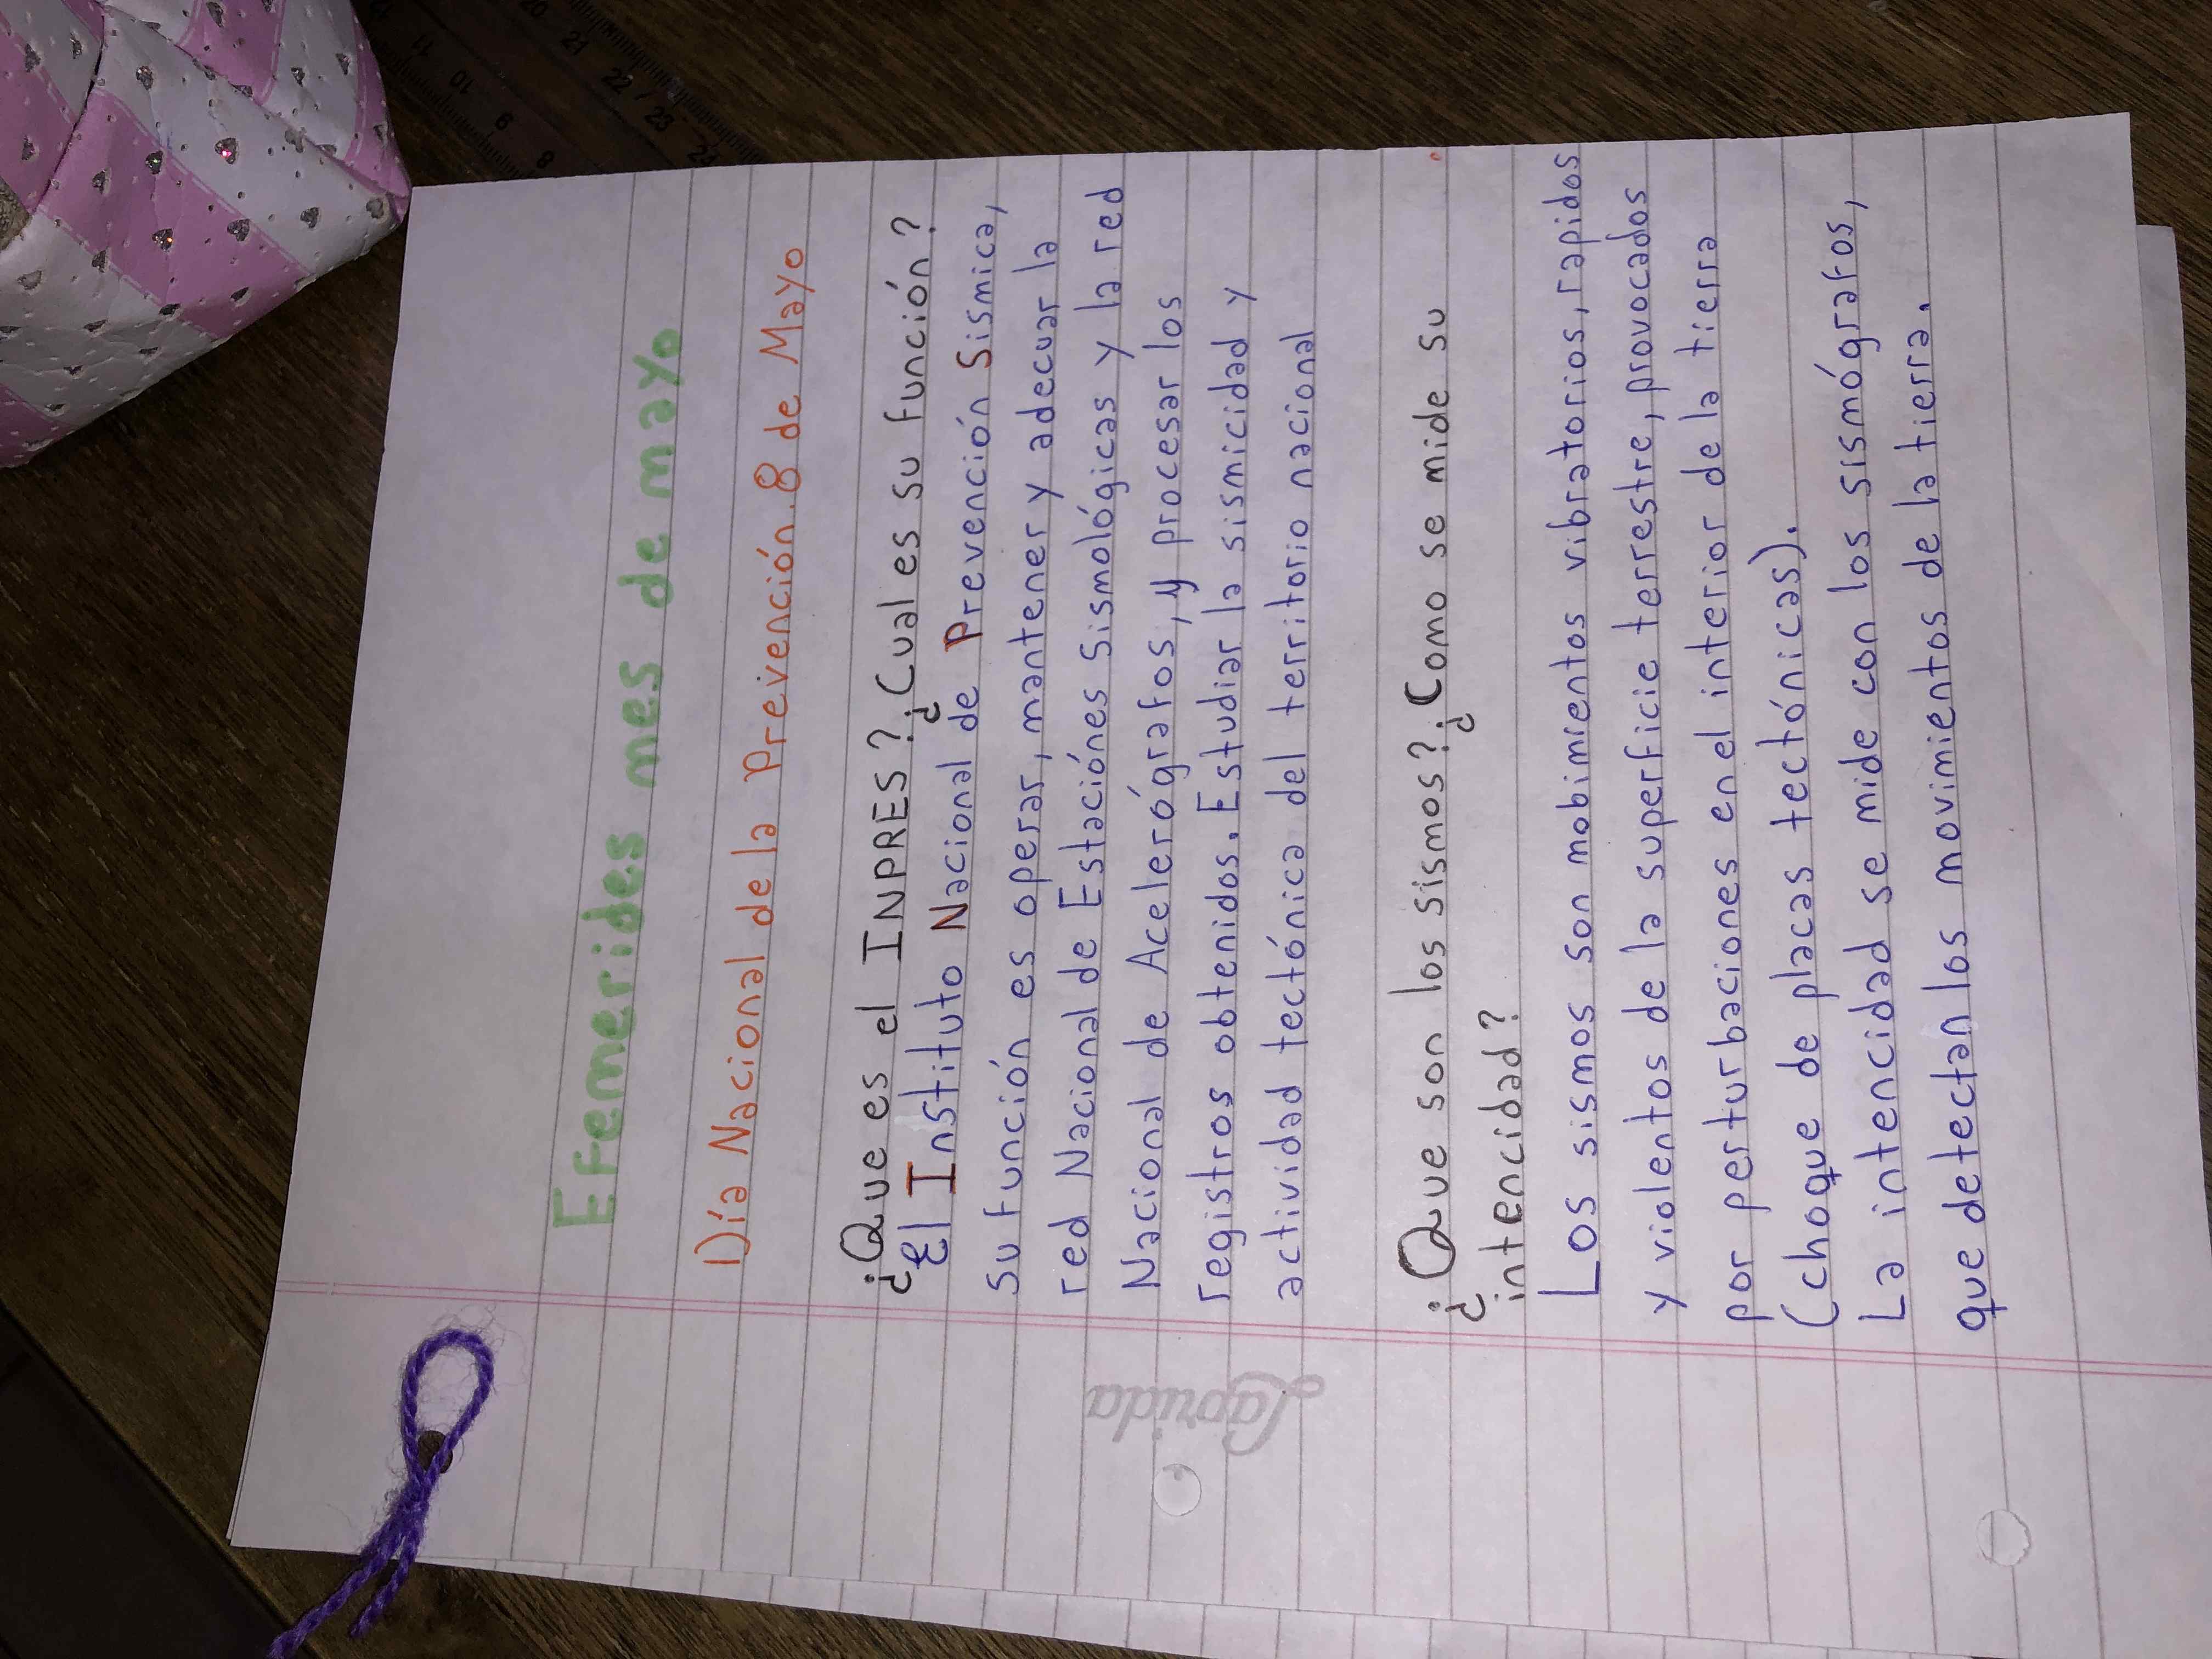 Efemerides mes de mayo
Día Nacional de la Prevención. 8 de Mayo
¿Que es el INPRES? ¿Cual es su función?
El Instituto Nacional de Prevención Sismica,
su función es operar, mantener y adecuar la
red Nacional de Estaciónes Sismológicas y la red
Nacional de Acelerógrafos, y procesar los
registros obtenidos. Estudiar la sismicidad y
actividad tectónica del territorio nacional
¿Que son los sismos? ¿Como se mide su
intencidad?
Los sismos son mobimientos vibratorios, rapidos
y violentos de la superficie terrestre, provocados
por perturbaciones en el interior de la tierra
(choque de placas tectónicas).
La intencidad se mide con los sismógrafos,
que detectan los movimientos de la tierra.
Laprida
11
10
9
8
20
21
22
23
24